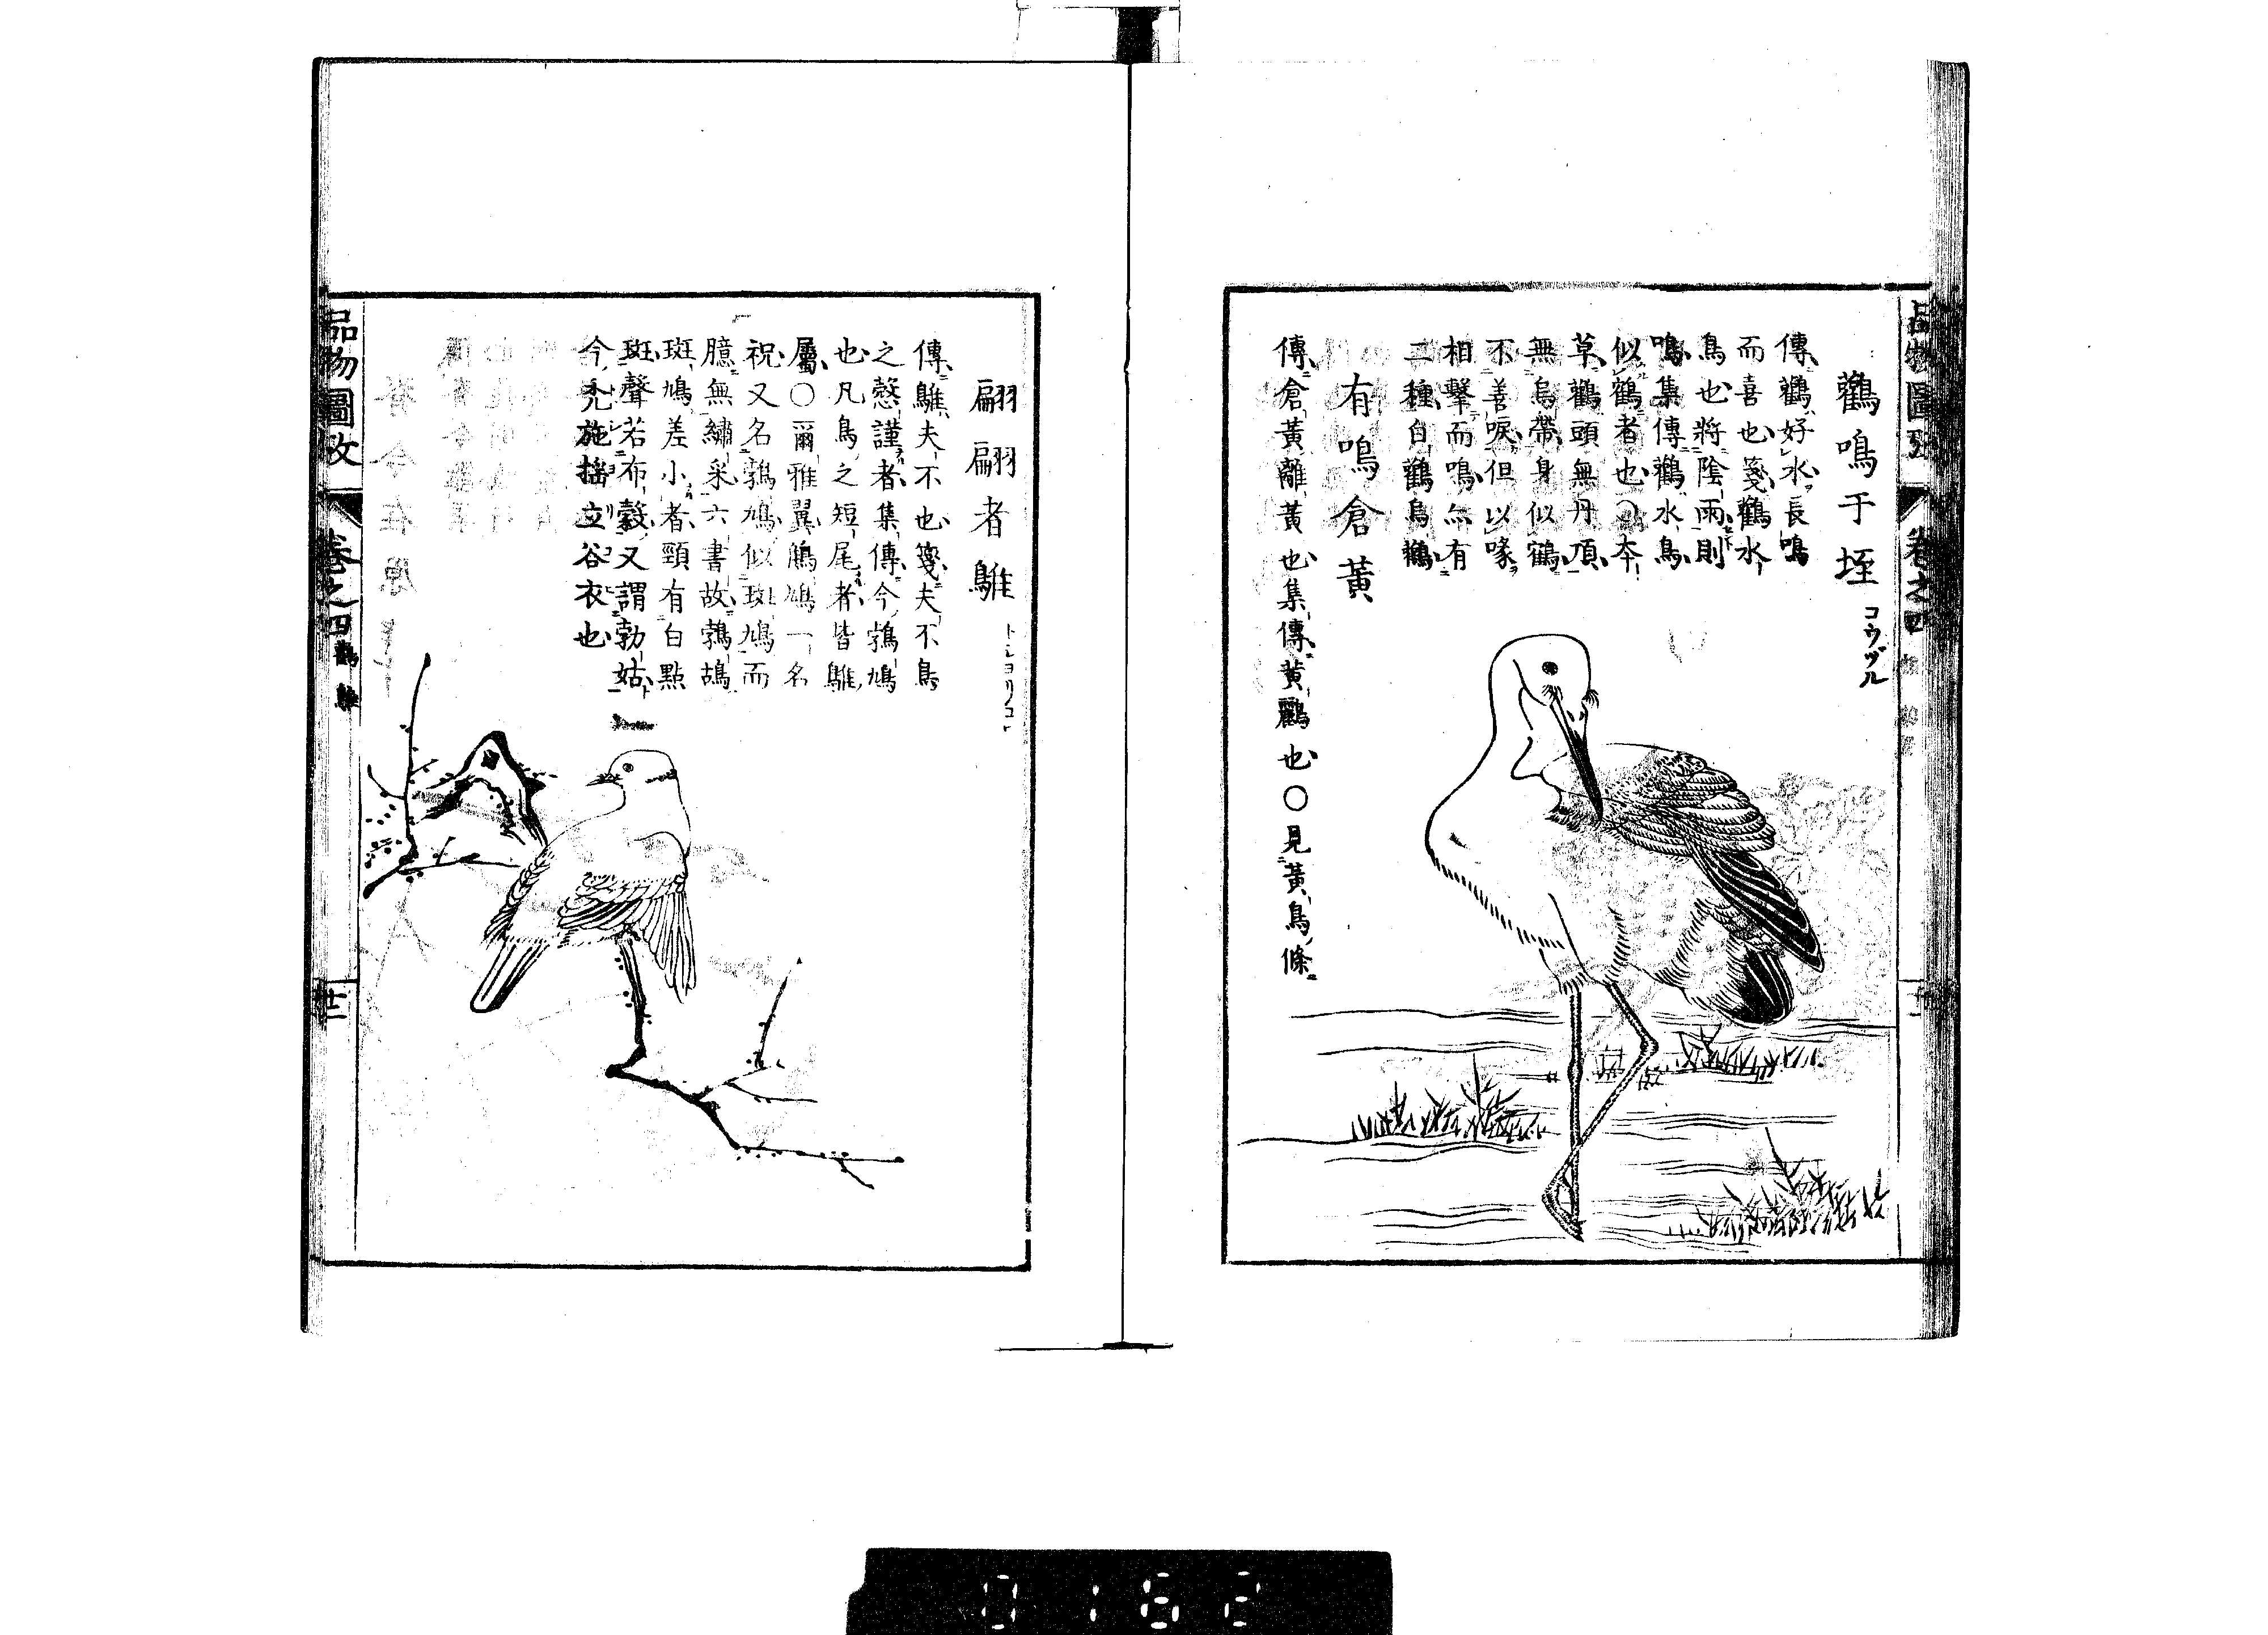 鸛鳴于垤
コウヅル
傳鸛好水長鳴
而喜也箋鸛水
鳥也將陰雨則
鳴集傳鸛水鳥
似鶴者也○本
草鸛頭無丹頂
無烏帶身似鶴
不善唳但以喙
相擊而鳴亦有
二種白鸛烏鸛
有鳴倉黃
傳倉黃離黃也集傳黃鸝也○見黃鳥條
翩翩者鵻
トシヨリコヒ
傳鵻夫不也箋夫不鳥
之愨謹者集傳今鵓鳩
也凡鳥之短尾者皆鵻
屬○爾雅翼鵻鳩一名
祝又名鵓鳩似斑鳩而
臆無繡采六書故鵓鴣
斑鳩差小者頸有白點
斑聲若布穀又謂勃姑
今禿施揺立谷衣也
品物圖攷
卷之四
鸛 鵻
廿二
0162